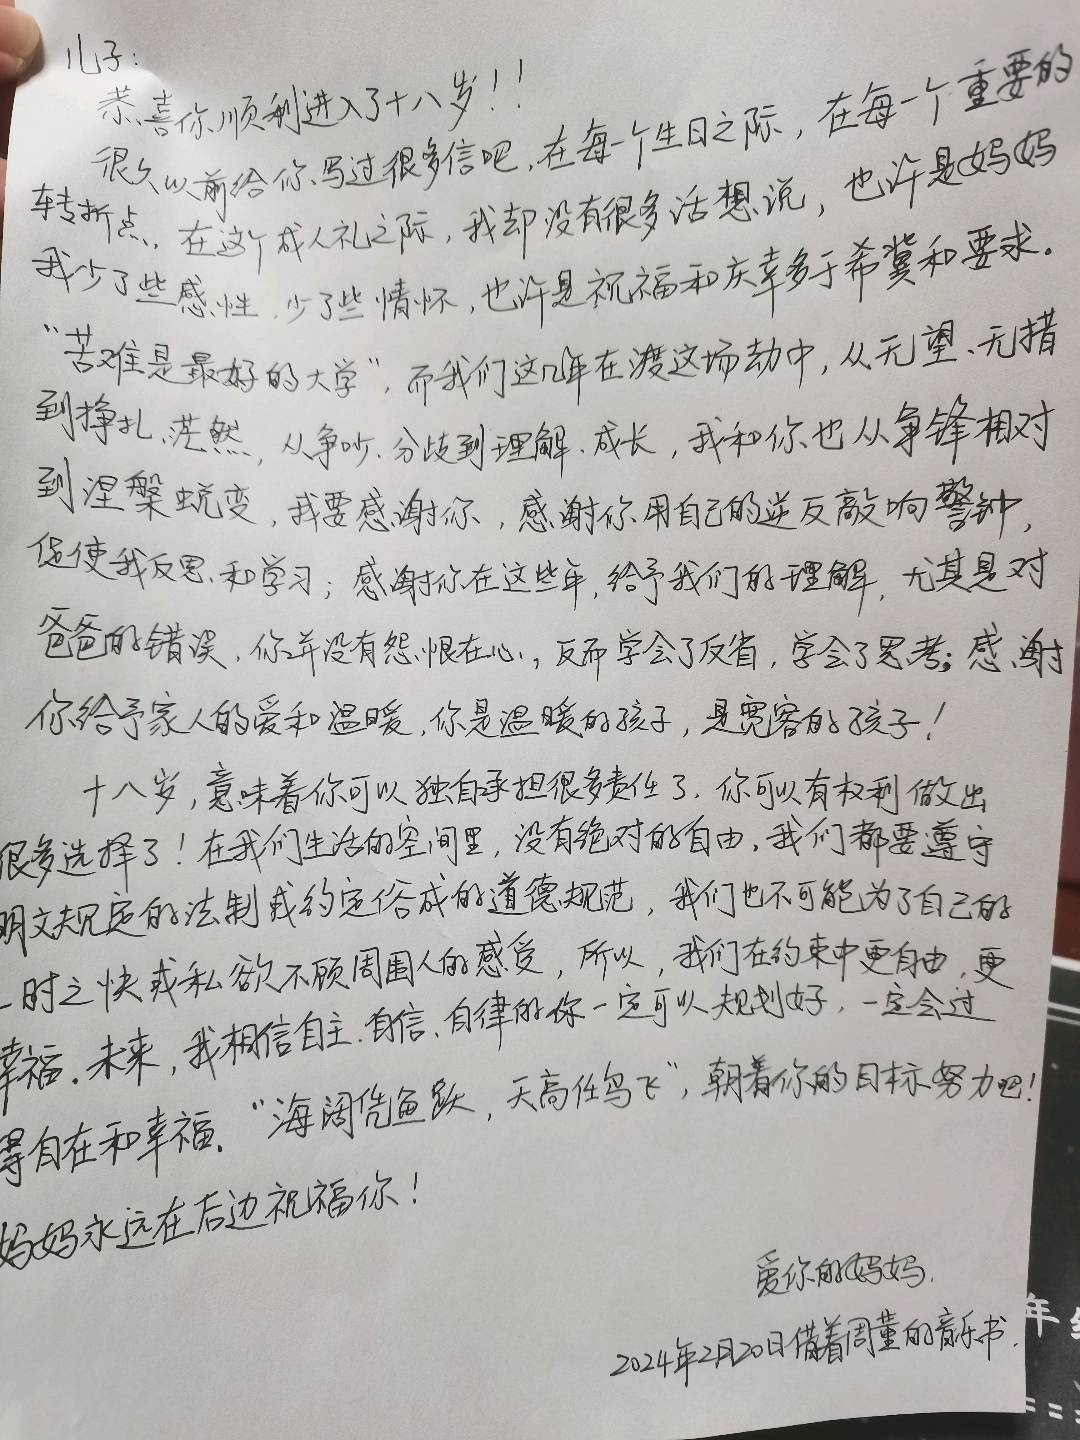 儿子：
恭喜你顺利进入了十八岁！！
很久以前给你写过很多信吧，在每一个生日之际，在每一个重要的
转折点，在这个成人礼之际，我却没有很多话想说，也许是妈妈
我少了些感性，少了些情怀，也许是祝福和庆幸多于希冀和要求。
“苦难是最好的大学”，而我们这几年在渡这场劫中，从无望、无措
到挣扎、茫然，从争吵、分歧到理解、成长，我和你也从争锋相对
到涅槃蜕变，我要感谢你，感谢你用自己的逆反敲响警钟，
促使我反思和学习；感谢你在这些年，给予我们的理解，尤其是对
爸爸的错误，你并没有怨恨在心，反而学会了反省，学会了思考；感谢
你给予家人的爱和温暖，你是温暖的孩子，是宽容的孩子！
十八岁，意味着你可以独自承担很多责任了，你可以有权利做出
很多选择了！在我们生活的空间里，没有绝对的自由，我们都要遵守
明文规定的法制或约定俗成的道德规范，我们也不可能为了自己的
一时之快或私欲不顾周围人的感受，所以，我们在约束中更自由，更
幸福。未来，我相信自主、自信、自律的你一定可以规划好，一定会过
得自在和幸福。“海阔凭鱼跃，天高任鸟飞”，朝着你的目标努力吧！
妈妈永远在后边祝福你！
爱你的妈妈.
2024年2月20日借着周董的音乐书.
年